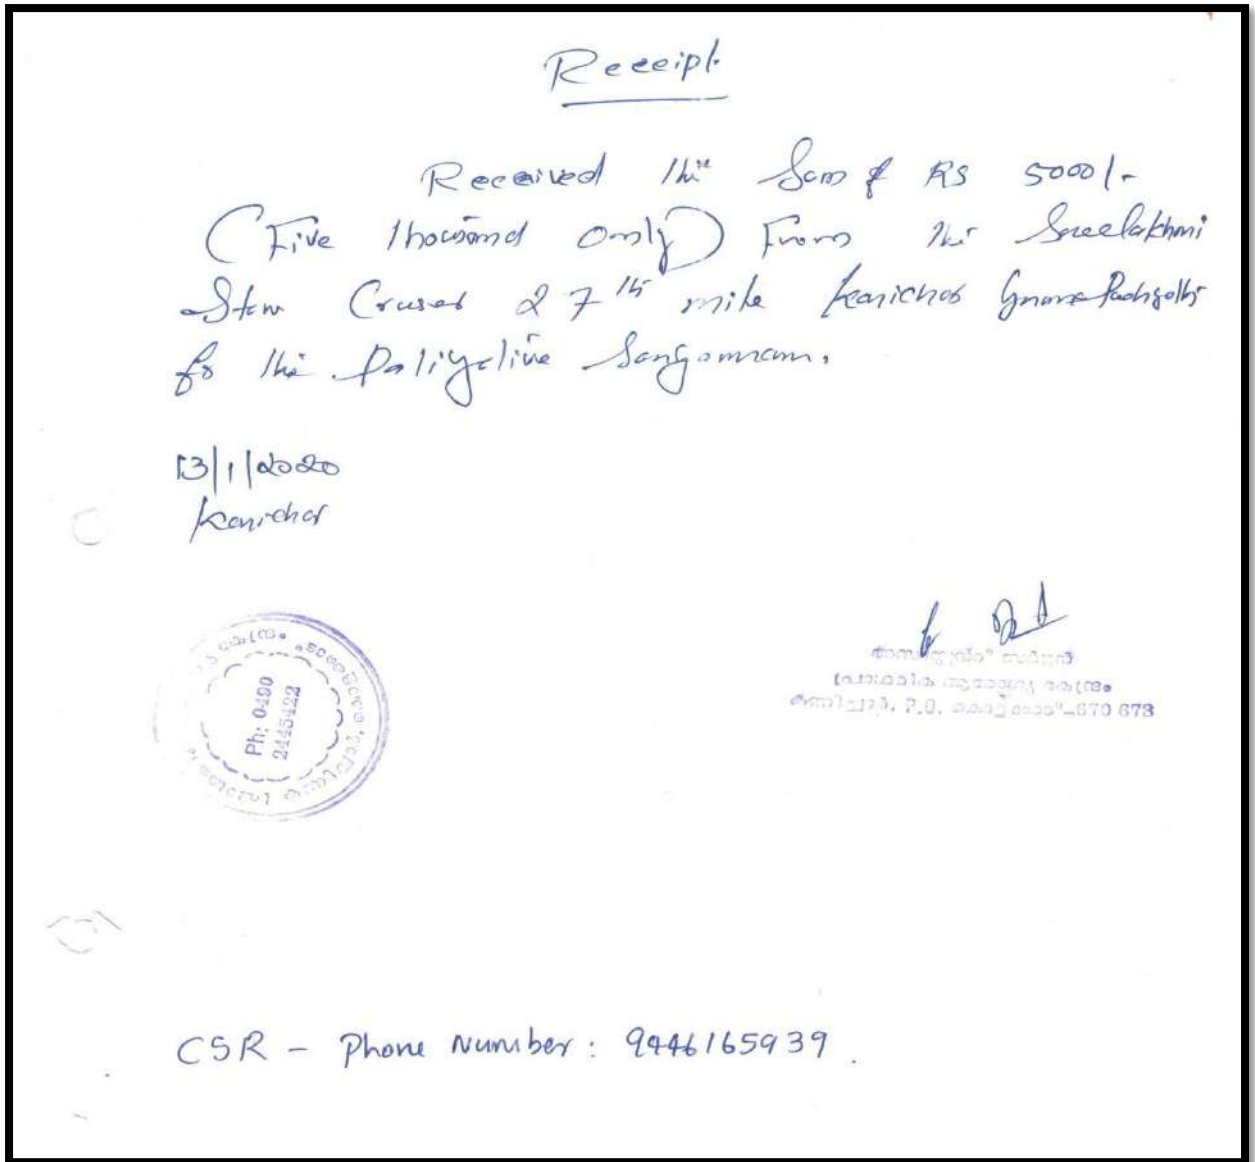 Receipt
Received the Sum of RS 5000/-
(Five thousand Only) From the Sreelakhmi
Stone Cruser 27th mile Kanichar
for the Paliyative Sangamam.
13/1/2020
Kanichar
Ph: 0490
2445422
പ്രാഥമിക ആരോഗ്യ കേന്ദ്രം
കണിച്ചാർ, P.O. -670 673
CSR - Phone Number: 9446165939.